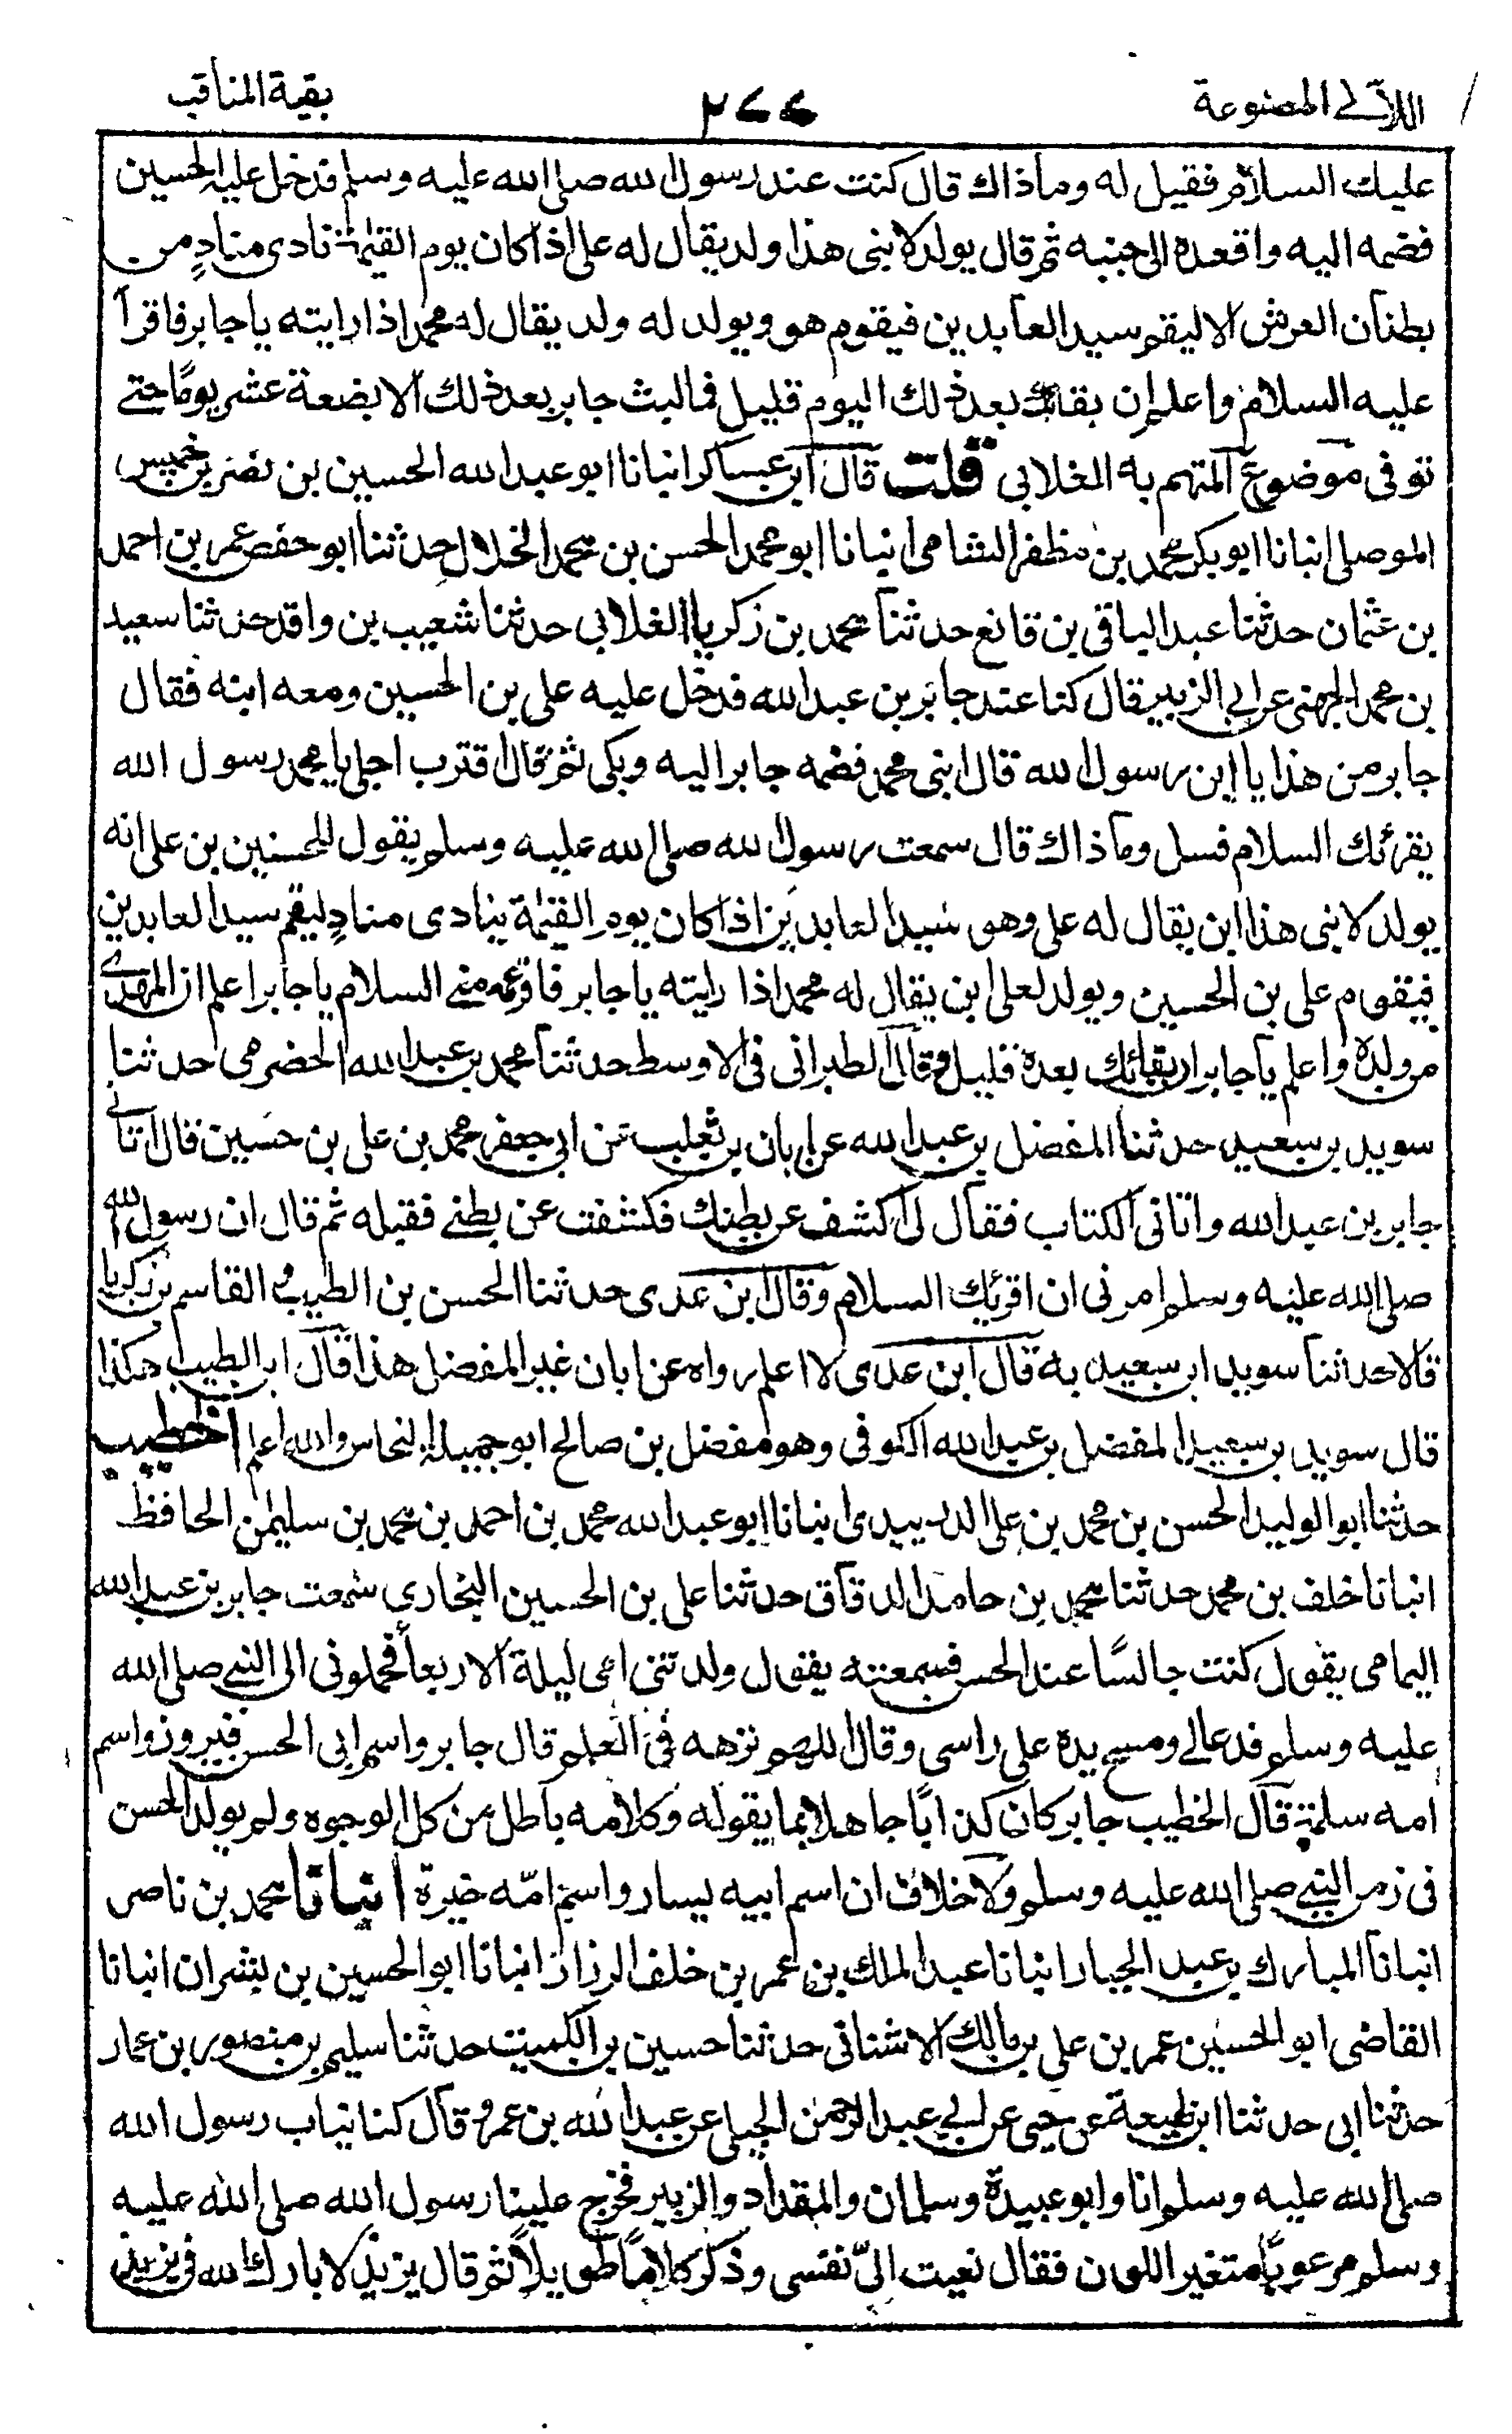 اللآلى المصنوعة ٢٧٧ بقية المناقب
عليك السلام فقيل له وما ذاك قال كنت عند رسول الله صلى الله عليه وسلم فدخل عليه الحسين
فضمه اليه واقعده الى جنبه ثم قال يولد لابنى هذا ولد يقال له على اذا كان يوم القيٰمة نادى منادٍ من
بطنان العرش الا ليقم سيد العابدين فيقوم هو ويولد له ولد يقال له محمد اذا رايته يا جابر فاقرأ
عليه السلام واعلم ان بقائك بعد ذلك اليوم قليل فما لبث جابر بعد ذلك الا بضعة عشر يومًا حتے
توفى موضوع المتهم به الغلابى قلت قال ابن عساكر انبانا ابو عبد الله الحسين بن نصر بن خميس
الموصلى انبانا ابو بكر محمد بن مظفر الشامى انبانا ابو محمد الحسن بن محمد الخلال حدثنا ابو حفص عمر بن احمد
بن عثمان حدثنا عبد الباقى بن قانع حدثنا محمد بن زكريا الغلابى حدثنا شعيب بن واقد حدثنا سعيد
بن محمد الجهنى عن ابى الزبير قال كنا عند جابر بن عبد الله فدخل عليه على بن الحسين ومعه ابنه فقال
جابر من هذا يا ابن رسول الله قال ابنى محمد فضمه جابر اليه وبكى ثم قال اقترب اجلى يا محمد رسول الله
يقرئك السلام فسل وما ذاك قال سمعت رسول الله صلى الله عليه وسلم يقول للحسين بن على انه
يولد لابنى هذا ابن يقال له على وهو سيد العابدين اذا كان يوم القيٰمة ينادى منادٍ ليقم سيد العابدين
فيقوم على بن الحسين ويولد لعلى ابن يقال له محمد اذا رايته يا جابر فاقرئه منے السلام يا جابر اعلم ان المهدے
من ولده واعلم يا جابر ان بقائك بعده قليل وقال الطبرانى فى الاوسط حدثنا محمد بن عبد الله الحضرمى حدثنا
سويد بن سعيد حدثنا المفضل بن عبد الله عن ابان بن تغلب عن ابى جعفر محمد بن على بن حسين قال اتانے
جابر بن عبد الله وانا فى الكتاب فقال لى اكشف عن بطنك فكشفت عن بطنے فقبله ثم قال ان رسول الله
صلى الله عليه وسلم امرنى ان اقرئك السلام وقال ابن عدى حدثنا الحسن بن الطيب والقاسم بن زكريا
قالا حدثنا سويد ابن سعيد به قال ابن عدى لا اعلم رواه عن ابان غير المفضل هذا قال ابن الطيب هكذا
قال سويد بن سعيد المفضل بن عبد الله الكوفى وهو مفضل بن صالح ابو جميلة النحاس والله اعلم الخطيب
حدثنا ابو الوليد الحسن بن محمد بن على الدربيدى انبانا ابو عبد الله محمد بن احمد بن محمد بن سليمٰن الحافظ
انبانا خلف بن محمد حدثنا محمد بن حامد الدقاق حدثنا على بن الحسين البخارى سمعت جابر بن عبد الله
اليمامى يقول كنت جالسًا عند الحسن فسمعته يقول ولدتنى امى ليلة الاربعاء فحملونى الى النبے صلى الله
عليه وسلم فدعا لے ومسح يده على راسى وقال اللهم نزهه فى العلم قال جابر واسم ابى الحسن فيروز واسم
امه سلمة قال الخطيب جابر كان كذابًا جاهلا بما يقوله وكلامه باطل من كل الوجوه ولم يولد الحسن
فى زمن النبے صلى الله عليه وسلم ولا خلاف ان اسم ابيه يسار واسم امّه خيرة انبانا محمد بن ناصر
انبانا المبارك بن عبد الجبار انبانا عبد الملك بن عمر بن خلف الرزاز انبانا ابو الحسين بن بشران انبانا
القاضى ابو الحسين عمر بن على بن مالك الاشنانى حدثنا حسين بن الكميت حدثنا سليم بن منصور بن عمار
حدثنا ابى حدثنا ابن لهيعة عن حيى عن ابى عبد الرحمٰن الحبلى عن عبد الله بن عمرو قال كنا بباب رسول الله
صلى الله عليه وسلم انا وابو عبيدة وسلمان والمقداد والزبير فخرج علينا رسول الله صلى الله عليه
وسلم مرعوبًا متغير اللون فقال نعيت الىّ نفسى وذكر كلامًا طويلًا ثم قال يزيد لا بارك الله فى يزيد